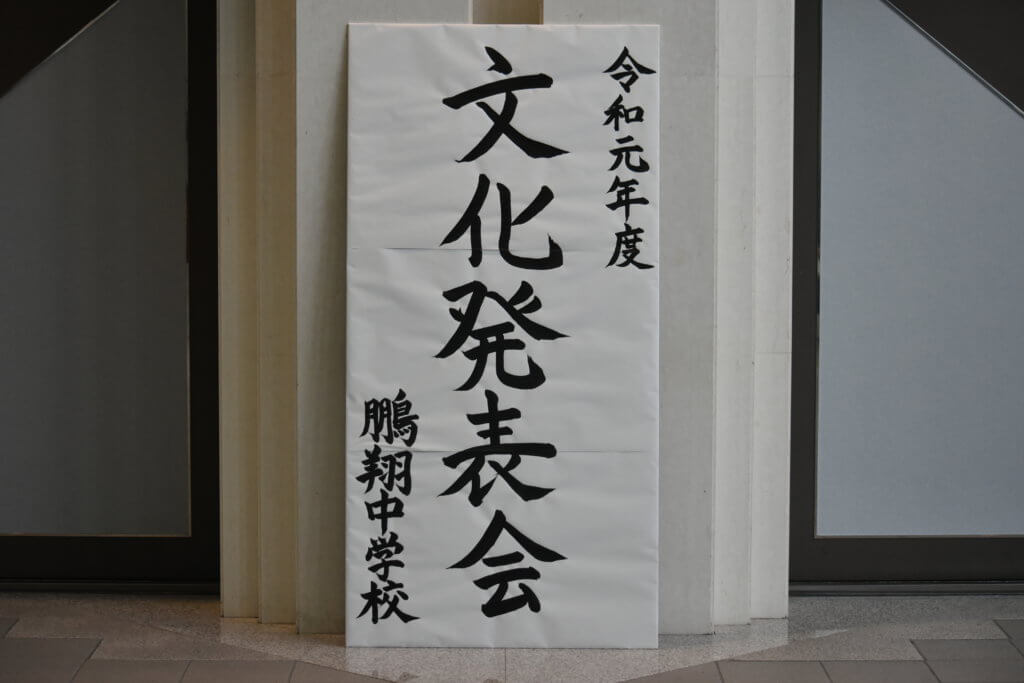 令和元年度
文化発表会
鵬翔中学校